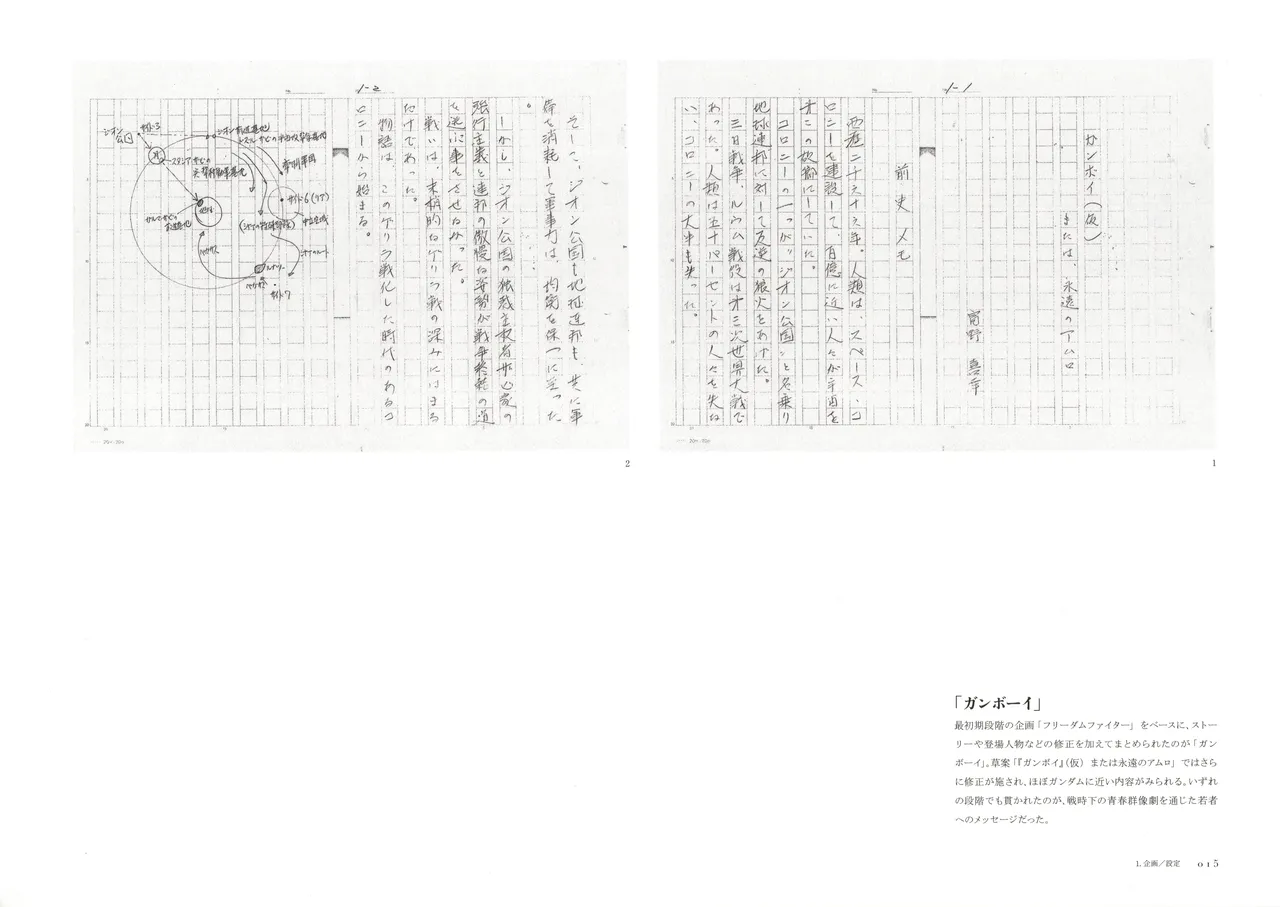 1-1
ガンボイ(仮)
または、永遠のアムロ
富野 喜幸
前史メモ
西暦二千六十六年。人類は、スペース・コ
ロニーを建設して、百億に近い人々が宇宙を
オ二の故郷にしていた。
コロニーの一つが〝ジオン公国〟と名乗り
地球連邦に対して反逆の狼火をあげた。
三日戦争、ルウム戦役はオ三次世界大戦で
あった。人類は五十パーセントの人々を失な
い、コロニーの大半も失った。
1
1-2
そして、ジオン公国も地球連邦も、共に軍
備を消耗して軍事力は、均衡を保つに至った
。
しかし、ジオン公国の独裁主权者
強行主義と連邦の傲慢な姿勢が戦争終結の道
を逃す事をさせなかった。
戦いは、末梢的なゲリラ戦の深みにはまる
だけであった。
物語は、このゲリラ戦化した時代のあるコ
ロニーから始まる。
ジオン公国
サイド3
地球
サイド6(リア)
中立空域
サイド7
20×20
2
「ガンボーイ」
最初期段階の企画「フリーダムファイター」をベースに、ストー
リーや登場人物などの修正を加えてまとめられたのが「ガン
ボーイ」。草案「『ガンボイ』(仮) または永遠のアムロ」ではさら
に修正が施され、ほぼガンダムに近い内容がみられる。いずれ
の段階でも貫かれたのが、戦時下の青春群像劇を通じた若者
へのメッセージだった。
1. 企画/設定 015